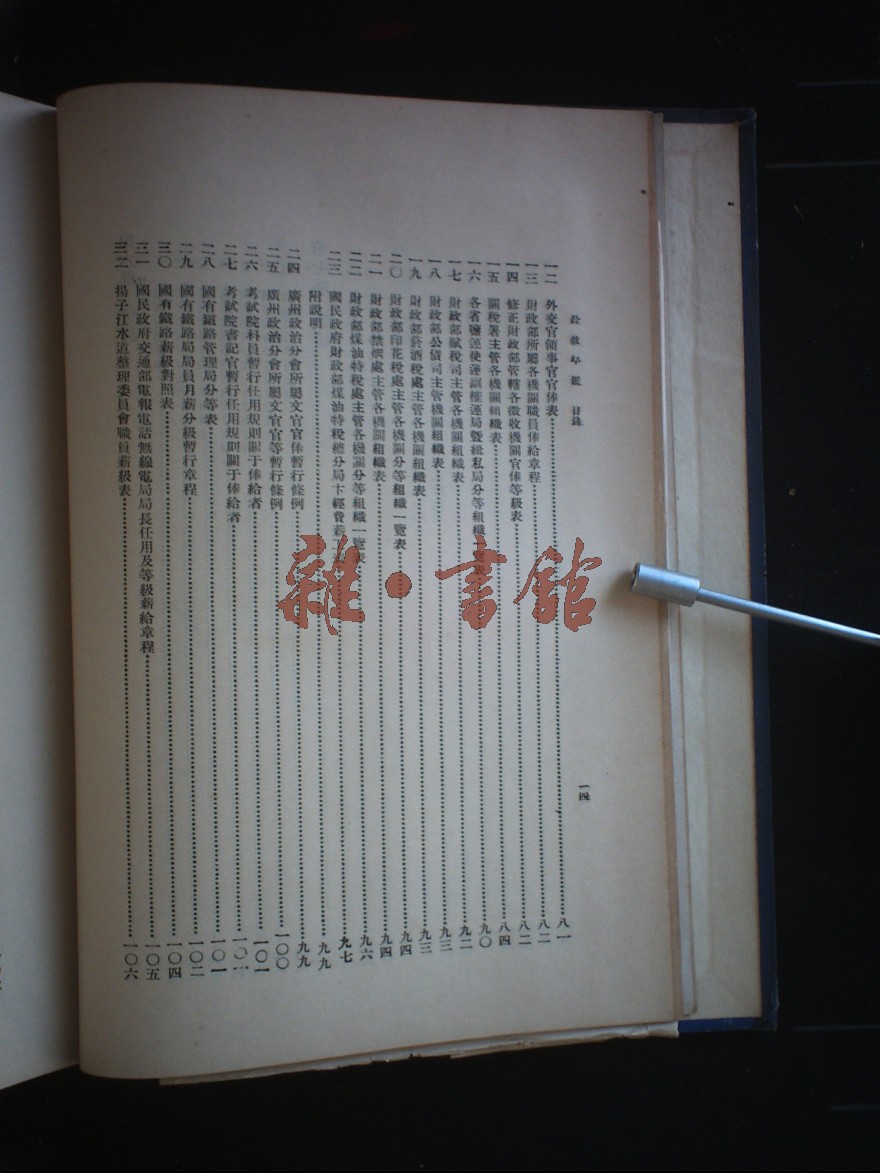 銓敘年鑑 目錄
一四
一二 外交官領事官官俸表 八一
一三 財政部所屬各機關職員俸給章程 八二
一四 修正財政部管轄各徵收機關官俸等級表 八二
一五 關稅署主管各機關組織表 八四
一六 各省鹽運使運副榷運局暨緝私局分等組織一覽表 九〇
一七 財政部賦稅司主管各機關組織表 九二
一八 財政部公債司主管機關組織表 九三
一九 財政部菸酒稅處主管各機關組織表 九三
二〇 財政部印花稅處主管各機關分等組織一覽表 九四
二一 財政部禁煙處主管各機關組織表 九四
二二 財政部煤油特稅處主管各機關分等組織一覽表 九六
二三 國民政府財政部煤油特稅總分局卡經費薪工表 九七
附說明 九九
二四 廣州政治分會所屬文官官俸暫行條例 九九
二五 廣州政治分會所屬文官官等暫行條例 一〇〇
二六 考試院科員暫行任用規則關于俸給者 一〇一
二七 考試院書記官暫行任用規則關于俸給者 一〇一
二八 國有鐵路管理局分等表 一〇一
二九 國有鐵路局局員月薪分級暫行章程 一〇二
三〇 國有鐵路薪級對照表 一〇四
三一 國民政府交通部電報電話無線電局局長任用及等級薪給章程 一〇五
三二 揚子江水道整理委員會職員薪級表 一〇六
雜·書館